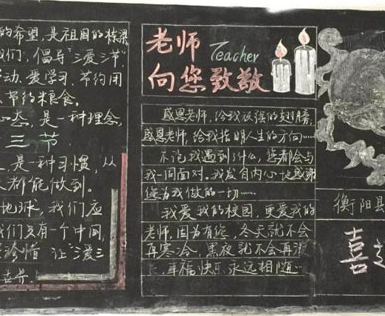 的希望,是祖国的栋梁
我们,倡导“三爱三节”
劳动、爱学习、节约用
节约粮食。
心态,是一种理念,
三节
是一种习惯,从
都能做到。
地球,我们应
我们只有一个中国,
让“三爱三
老师
Teacher
向您致敬
感恩老师,给我顽强的翅膀,
感恩老师,给我指明人生的方向……
不论我遇到了什么,您都会与
我一同面对,我发自内心地感谢
您为我做的一切……
我爱我的校园,更爱我的
老师,因为有您,冬天就不会
再寒冷,黑夜就不会再漫
长,幸福快乐永远相随…
衡阳县
喜